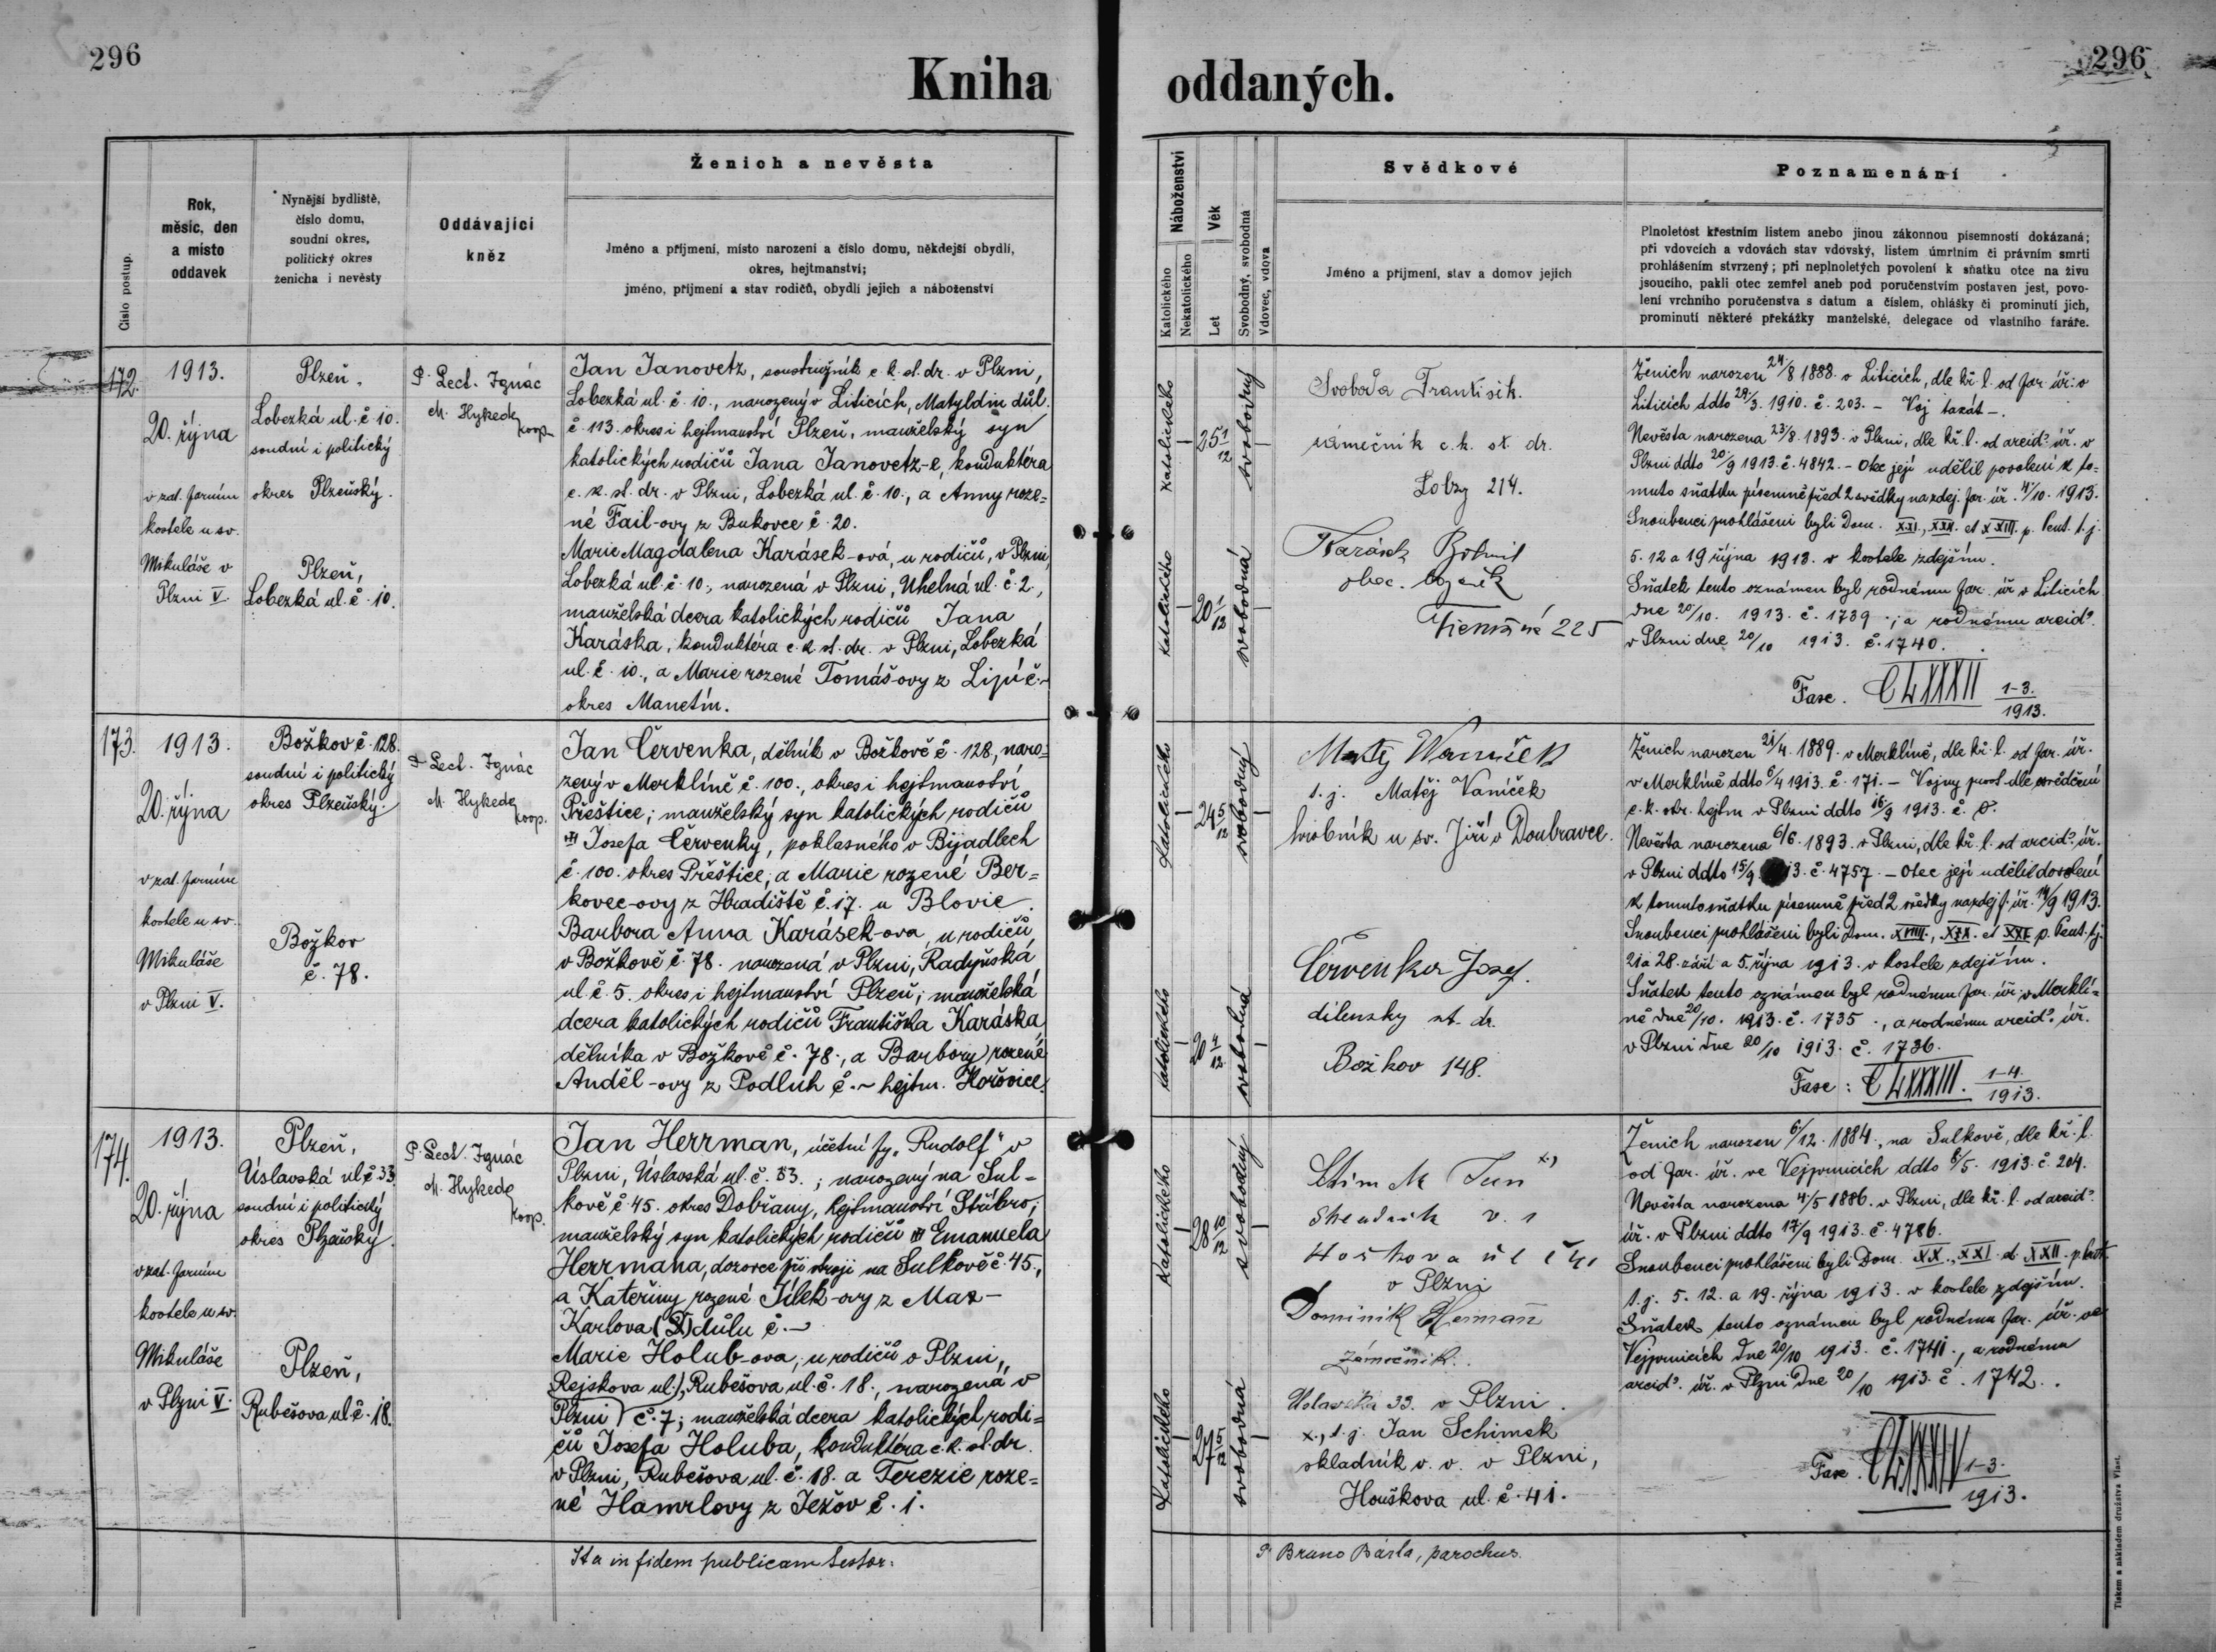 296
Kniha oddaných.
296
Číslo postup.
Rok,
měsíc, den
a místo
oddavek
Nynější bydliště,
číslo domu,
soudní okres,
politický okres
ženicha i nevěsty
Oddávající
kněz
Ženich a nevěsta
Jméno a příjmení, místo narození a číslo domu, někdejší obydlí,
okres, hejtmanství;
jméno, příjmení a stav rodičů, obydlí jejich a náboženství
Náboženství
Katolického
Nekatolického
Věk
Let
Svobodný, svobodná
Vdovec, vdova
Svědkové
Jméno a příjmení, stav a domov jejich
Poznamenání
Plnoletost křestním listem anebo jinou zákonnou písemností dokázaná;
při vdovcích a vdovách stav vdovský, listem úmrtním či právním smrti
prohlášením stvrzený; při neplnoletých povolení k sňatku otce na živu
jsoucího, pakli otec zemřel aneb pod poručenstvím postaven jest, povo-
lení vrchního poručenstva s datum a číslem, ohlášky či prominutí jich,
prominutí některé překážky manželské, delegace od vlastního faráře.
172.
1913.
20. října
v zat. farním
kostele u sv.
Mikuláše v
Plzni V.
Plzeň,
Lobezká ul. č 10.
soudní i politický
okres Plzeňský.
Plzeň,
Lobezká ul. č. 10.
P. Lect. Ignác
M. Hykede
koop.
Jan Janovetz, soustružník c. k. st. dr. v Plzni,
Lobezká ul. č. 10., narozený v Liticích, Matyldin důl.
č. 113. okres i hejtmanství Plzeň, manželský syn
katolických rodičů Jana Janovetz-e, konduktéra
c. k. st. dr. v Plzni, Lobezká ul. č. 10., a Anny roze=
né Fail-ovy z Bukovce č. 20.
Marie Magdalena Karásek-ová, u rodičů, v Plzni,
Lobezká ul. č. 10., narozená v Plzni, Uhelná ul. č. 2,
manželská dcera katolických rodičů Jana
Karáska, konduktéra c. k. st. dr. v Plzni, Lobezká
ul. č. 10., a Marie rozené Tomáš-ovy z Lipí č. ~
okres Manetín.
katolického
25 1/12
svobodný
katolického
20 1/12
svobodná
Svoboda František.
zámečník c. k. st. dr.
Lobzy 214.
Karásek Bohumil
obec.
225
Ženich narozen 24/8 1888. v Liticích, dle kř. l. od far. úř. v
Liticích ddto 29/3. 1910. č. 203. –
Nevěsta narozena 23/8. 1893. v Plzni, dle kř. l. od arcid. úř. v
Plzni ddto 20/9 1913. č. 4842. – Otec její udělil povolení k to=
muto sňatku písemně před 2 svědky na zdej. far. úř. 4/10. 1913.
Snoubenci prohlášeni byli Dom. XXI., XXII. et XXIII. p. Pent. t. j.
5. 12 a 19 října 1913. v kostele zdejším.
Sňatek tento oznámen byl rodnému far. úř. v Liticích
dne 20/10. 1913. č. 1739.; a rodnému arcid.
v Plzni dne 20/10 1913. č. 1740.
Fasc. CLXXXII 1-3. 1913.
173.
1913.
20. října
v zat. farním
kostele u sv.
Mikuláše
v Plzni V.
Božkov č. 128.
soudní i politický
okres Plzeňský.
Božkov
č. 78.
P. Lect. Ignác
M. Hykede
koop.
Jan Červenka, dělník v Božkově č. 128, naro-
zený v Merklíně č. 100., okres i hejtmanství
Přeštice; manželský syn katolických rodičů
Josefa Červenky, poklasného v Bijadlech
č. 100. okres Přeštice, a Marie rozené Ber=
kovec-ovy z Hradiště č. 17. u Blovic.
Barbora Anna Karásek-ova, u rodičů
v Božkově č. 78. narozená v Plzni, Radyňská
ul. č 5. okres i hejtmanství Plzeň; manželská
dcera katolických rodičů Františka Karáska,
dělníka v Božkově č. 78., a Barbory rozené
Anděl-ovy z Podluh č. ~ hejtm. Hořovice.
katolického
24 5/12
svobodný
katolického
20 4/12
svobodná
t. j. Matěj Vaníček
hrobník u sv. Jiří v Doubravce.
Červenka Josef.
dílenský st. dr.
Božkov 148.
Ženich narozen 21/4. 1889. v Merklíně, dle kř. l. od far. úř.
v Merklíně ddto 6/4 1913. č. 171. – Vojny prost dle svědčení
c. k. okr. hejtm v Plzni ddto 16/9 1913.
Nevěsta narozena 6/6. 1893. v Plzni, dle kř. l. od arcid. úř.
v Plzni ddto 15/9 13. č. 4757. – Otec její udělil dovolení
k tomuto sňatku písemně před 2 svědky na zdej. f. úř. 14/9 1913.
Snoubenci prohlášeni byli Dom. XVIII., XIX. et XXI p. Pent. t. j.
21 a 28. září a 5. října 1913. v kostele zdejším.
Sňatek tento oznámen byl rodnému far. úř. v Merklí=
ně dne 20/10. 1913. č. 1735., a rodnému arcid. úř.
v Plzni dne 20/10 1913. č. 1736.
Fasc: CLXXXIII. 1-4. 1913.
174.
1913.
20. října
v zat. farním
kostele u sv.
Mikuláše
v Plzni V.
Plzeň,
Úslavská ul. č 33.
soudní i politický
okres Plzeňský.
Plzeň,
Rubešova ul. č. 18.
P. Lect. Ignác
M. Hykede
koop.
Jan Herrman, účetní fy. „Rudolf" v
Plzni, Úslavská ul. č. 33.; narozený na Sul-
kově č. 45. okres Dobřany, hejtmanství Stříbro;
manželský syn katolických rodičů Emanuela
Herrmana, dozorce při stroji na Sulkově č. 45.,
a Kateřiny rozené Jílek-ovy z Max-
Karlova důlu č. ~
Marie Holub-ova, u rodičů v Plzni,
Rejskova ul.), Rubešova ul. č. 18., narozená v
Plzni č. 7; manželská dcera katolických rodi=
čů Josefa Holuba, konduktéra c. k. st. dr.
v Plzni, Rubešova ul. č. 18. a Terezie roze=
né Hamrlovy z Ježov č. 1.
Katolického
28 10/12
svobodný
Katolického
27 5/12
svobodná
v Plzni
Dominik Herman
zámečník.
Úslavská 33. v Plzni.
x., t. j. Jan Schimek
skladník v. v. v Plzni,
Houškova ul. č. 41.
Ženich narozen 6/12. 1884., na Sulkově, dle kř. l.
od far. úř. ve Vejprnicích ddto 8/5. 1913. č. 204.
Nevěsta narozena 4/5 1886. v Plzni, dle kř. l. od arcid.
úř. v Plzni ddto 17/9 1913. č. 4786.
Snoubenci prohlášeni byli Dom. XX., XXI. et XXII. p. Pent.
t. j. 5. 12. a 19. října 1913. v kostele zdejším.
Sňatek tento oznámen byl rodnému far. úř. ve
Vejprnicích dne 20/10 1913. č. 1741., a rodnému
arcid. úř. v Plzni dne 20/10 1913. č. 1742.
Fasc. CLXXXIV 1-3. 1913.
Ita in fidem publicam testor:
P. Bruno Bárta, parochus.
Tiskem a nákladem družstva Vlast.